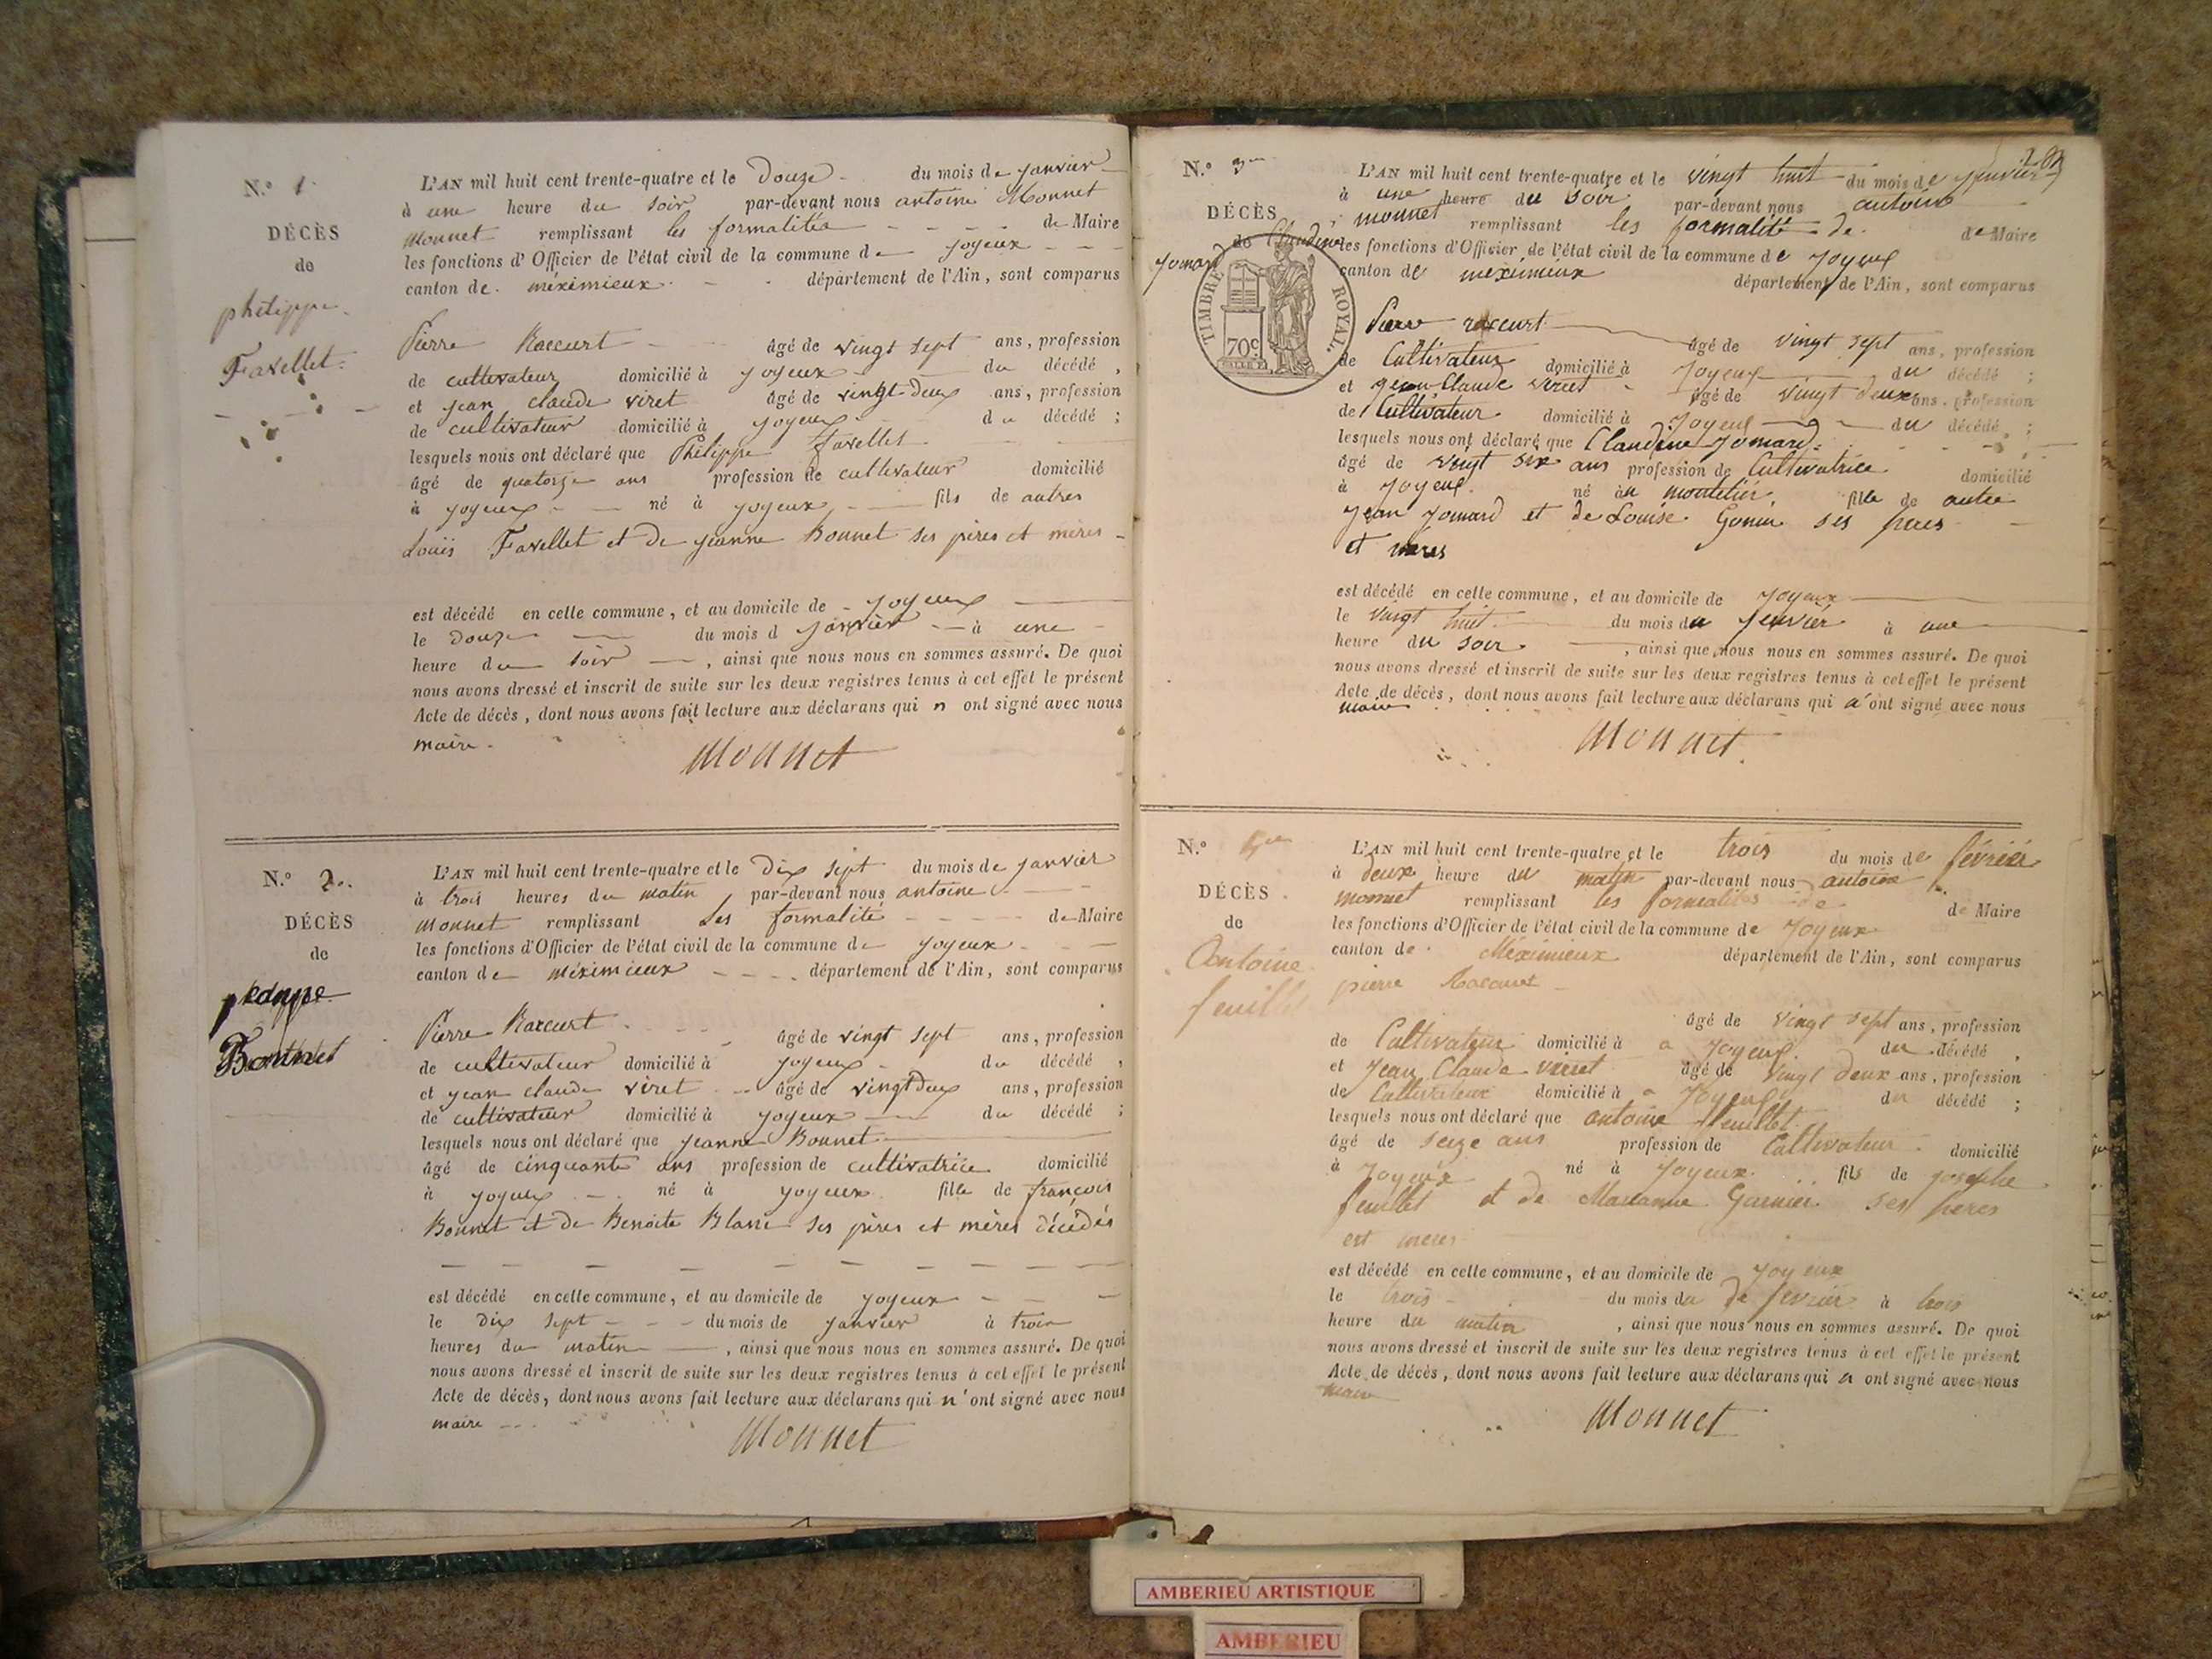 N.° 1
DÉCÈS
de
philippe
Favellet
L'AN mil huit cent trente-quatre et le Douze du mois de janvier
à une heure du soir par-devant nous antoine Monnet
Monnet remplissant les formalités de Maire
les fonctions d'Officier de l'état civil de la commune de joyeux
canton de méximieux département de l'Ain, sont comparus
Pierre Raccurt âgé de vingt sept ans, profession
de cultivateur domicilié à joyeux du décédé,
et jean claude viret âgé de vingt deux ans, profession
de cultivateur domicilié à joyeux du décédé;
lesquels nous ont déclaré que Philippe favellet
âgé de quatorze ans profession de cultivateur domicilié
à joyeux né à joyeux fils de autres
Louis Favellet et de jeanne Bonnet ses pères et mères
est décédé en celle commune, et au domicile de joyeux
le douze du mois d janvier à une
heure du soir, ainsi que nous nous en sommes assuré. De quoi
nous avons dressé et inscrit de suite sur les deux registres tenus à cet effet le présent
Acte de décès, dont nous avons fait lecture aux déclarans qui n ont signé avec nous
maire.
Monnet
N.° 2
DÉCÈS
de
Bonnet
L'AN mil huit cent trente-quatre et le Dix sept du mois de janvier
à trois heures du matin par-devant nous antoine
Monnet remplissant les formalité de Maire
les fonctions d'Officier de l'état civil de la commune de joyeux
canton de méximieux département de l'Ain, sont comparus
Pierre Raccurt âgé de vingt sept ans, profession
de cultivateur domicilié à joyeux du décédé,
et jean claude viret âgé de vingt Deux ans, profession
de cultivateur domicilié à joyeux du décédé;
lesquels nous ont déclaré que jeanne Bonnet
âgé de cinquante ans profession de cultivatrice domicilié
à joyeux né à joyeux fille de françois
Bonnet et de Benoite Blanc ses pères et mères décédés
est décédé en celle commune, et au domicile de joyeux
le dix sept du mois de janvier à trois
heures du matin, ainsi que nous nous en sommes assuré. De quoi
nous avons dressé et inscrit de suite sur les deux registres tenus à cet effet le présent
Acte de décès, dont nous avons fait lecture aux déclarans qui n'ont signé avec nous
maire
Monnet
N.° 3
DÉCÈS
de Claudine
Jomard
TIMBRE ROYAL.
70c
L'AN mil huit cent trente-quatre et le vingt huit du mois de janvier
à une heure du soir par-devant nous antoine
monnet remplissant les formalité de de Maire
les fonctions d'Officier de l'état civil de la commune de joyeux
canton de meximieux département de l'Ain, sont comparus
Pierre raccurt âgé de vingt sept ans, profession
de Cultivateur domicilié à Joyeux du décédé;
et jean Claude viret âgé de vingt deux ans, profession
de Cultivateur domicilié à Joyeux du décédé;
lesquels nous ont déclaré que Claudine Jomard
âgé de vingt six ans profession de Cultivatrice domicilié
à joyeux né au montelier fille de autre
jean jomard et de Louise Gonin ses peres
et meres
est décédé en celle commune, et au domicile de joyeux
le vingt huit du mois du janvier à une
heure du soir, ainsi que nous nous en sommes assuré. De quoi
nous avons dressé et inscrit de suite sur les deux registres tenus à cet effet le présent
Acte de décès, dont nous avons fait lecture aux déclarans qui n'ont signé avec nous
maire
Monnet
N.°
DÉCÈS
de
Antoine
feuillet
L'AN mil huit cent trente-quatre et le trois du mois de février
à deux heure du matin par-devant nous antoine
monnet remplissant les formalités de de Maire
les fonctions d'Officier de l'état civil de la commune de Joyeux
canton de Méximieux département de l'Ain, sont comparus
pierre Raccurt
âgé de vingt sept ans, profession
de Cultivateur domicilié à a joyeux du décédé,
et Jean Claude viret âgé de vingt deux ans, profession
de Cultivateur domicilié à a Joyeux du décédé;
lesquels nous ont déclaré que antoine feuillet
âgé de seize ans profession de Cultivateur domicilié
à Joyeux né à Joyeux fils de josephe
feuillet et de Marianne Garnier ses peres
est meres
est décédé en celle commune, et au domicile de joyeux
le trois du mois du de fevrier à trois
heure du matin, ainsi que nous nous en sommes assuré. De quoi
nous avons dressé et inscrit de suite sur les deux registres tenus à cet effet le présent
Acte de décès, dont nous avons fait lecture aux déclarans qui n ont signé avec nous
maire
Monnet
AMBERIEU ARTISTIQUE
AMBERIEU